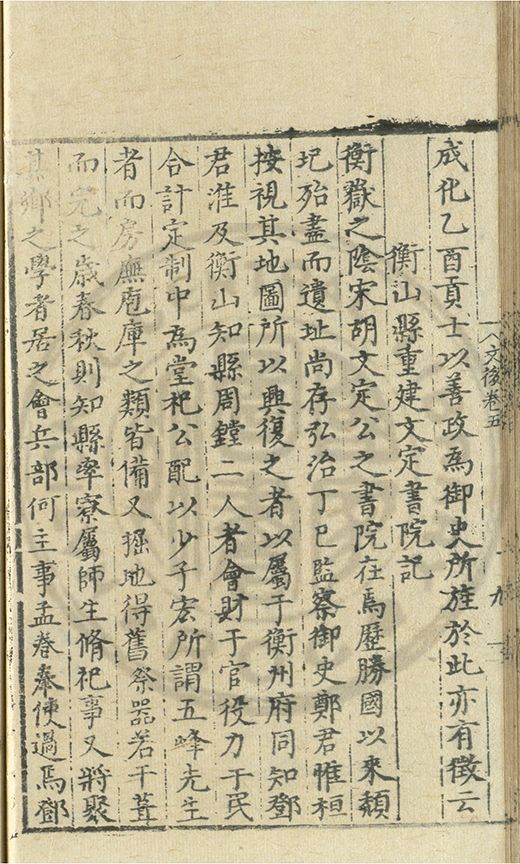 成化乙酉貢士以善政為御史所旌於此亦有徵云
衡山縣重建文定書院記
衡嶽之陰宋胡文定公之書院在焉歷勝國以來頹
圮殆盡而遺址尚存弘治丁巳監察御史鄭君惟桓
按視其地圖所以興復之者以屬于衡州府同知鄧
君淮及衡山知縣周鏜二人者會財于官役力于民
合計定制中為堂祀公配以少子宏所謂五峰先生
者而房廡庖庫之類皆備又掘地得舊祭器若干葺
而完之歲春秋則知縣率寮屬師生脩祀事又將聚
其鄉之學者居之會兵部何主事孟春奉使過焉鄧
文後卷五
九